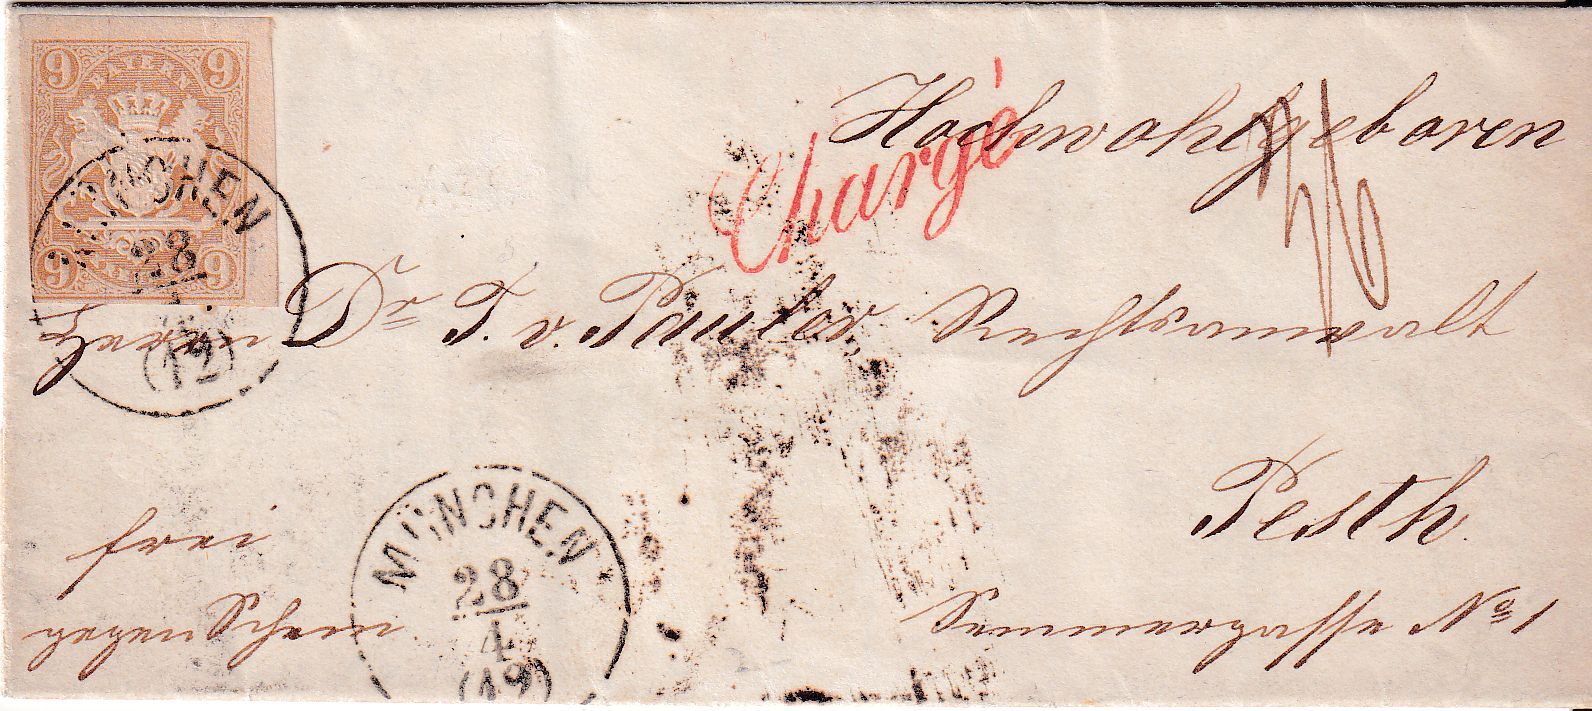 9 BAYERN 9
9 9
MÜNCHEN
28
(12)
Chargé
Hochwohlgeboren
Herrn Dr T. v. Pauler, Rechtsanwalt
Pesth.
frei
gegen Schein
MÜNCHEN
28
4
(12)
Semmergasse No 1